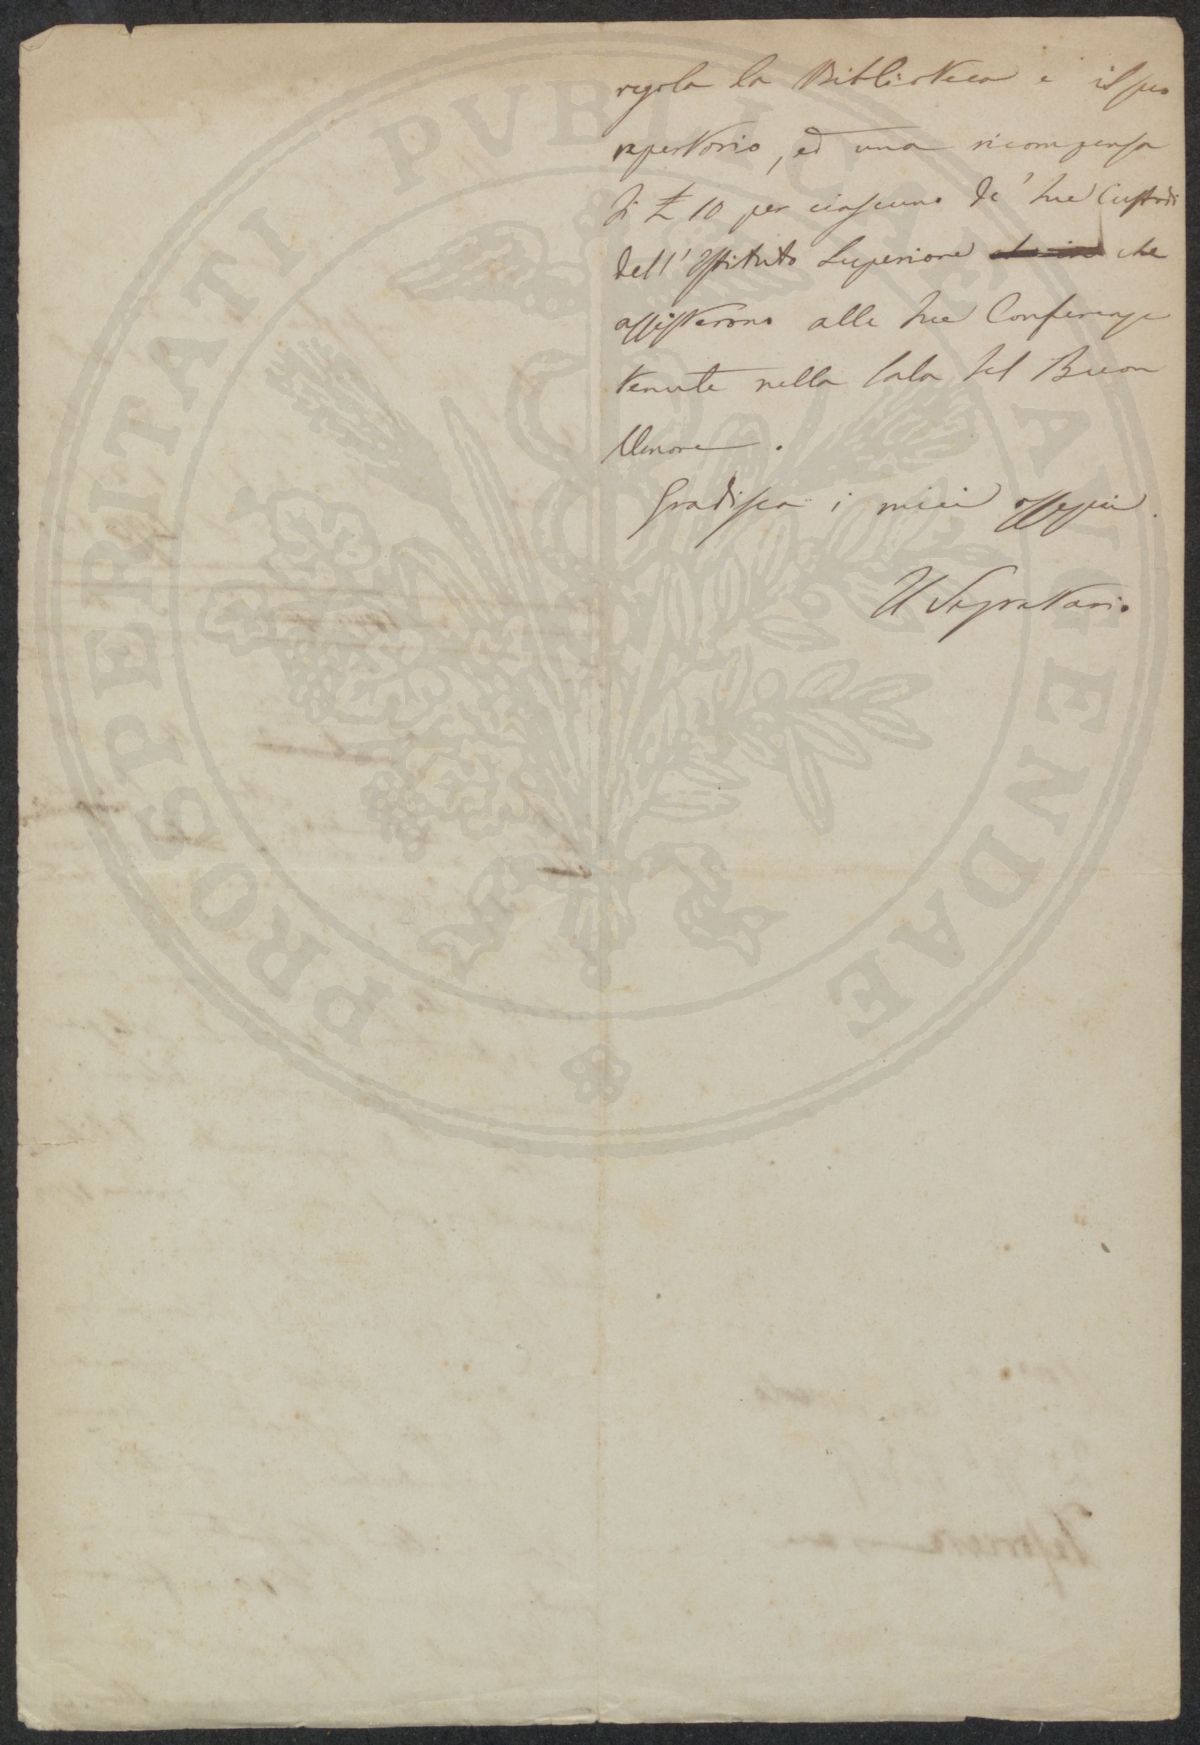 PROSPERITATI PVBLICAE AVGENDAE
regola la Biblioteca e il suo
repertorio, ed una ricompensa
di £ 10 per ciascuno de' due Custodi
dell'Istituto Superiore che
assisterono alle due Conferenze
tenute nella Sala del Buon
Umore.
Gradisca i miei ossequi.
Il Segretario